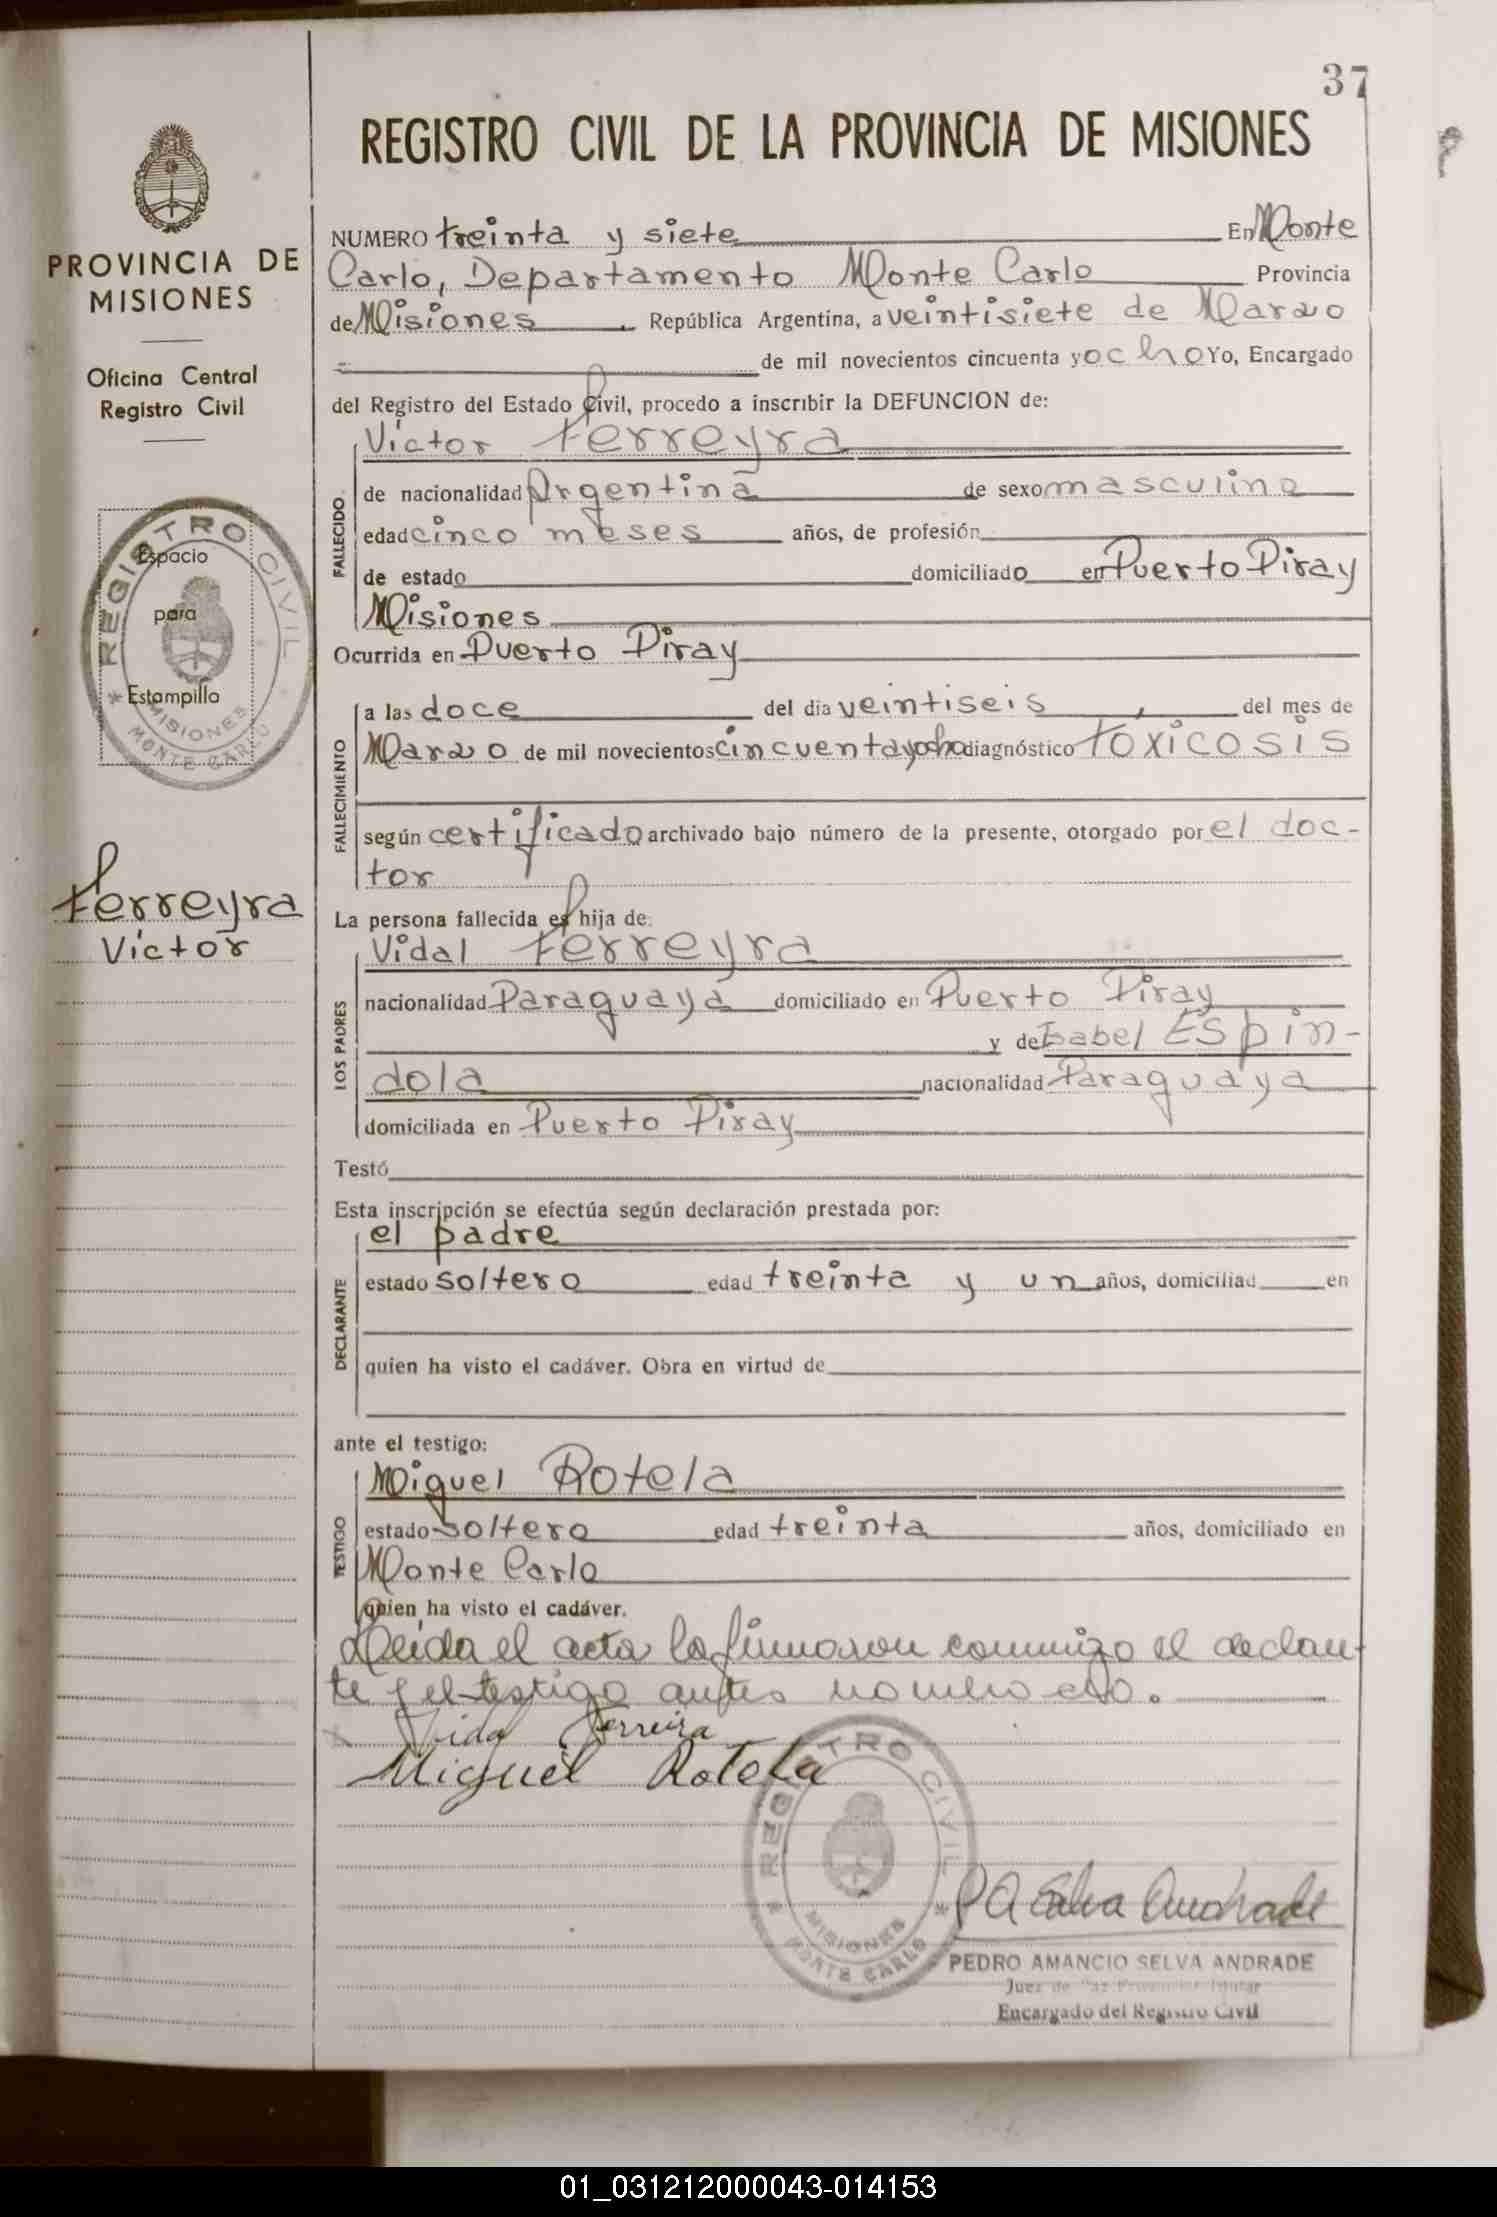 37
REGISTRO CIVIL DE LA PROVINCIA DE MISIONES
PROVINCIA DE
MISIONES
Oficina Central
Registro Civil
REGISTRO CIVIL
Espacio
para
Estampilla
MISIONES
* MONTE CARLO
Ferreyra
Victor
NUMERO treinta y siete En Monte
Carlo, Departamento Monte Carlo Provincia
de Misiones República Argentina, a veintisiete de Marzo
de mil novecientos cincuenta y ocho Yo, Encargado
del Registro del Estado Civil, procedo a inscribir la DEFUNCION de:
FALLECIDO
Victor Ferreyra
de nacionalidad Argentina de sexo masculino
edad cinco meses años, de profesión
de estado domiciliado en Puerto Piray
Misiones
Ocurrida en Puerto Piray
FALLECIMIENTO
a las doce del dia veintiseis, del mes de
Marzo de mil novecientos cincuenta y ocho diagnóstico toxicosis
según certificado archivado bajo número de la presente, otorgado por el doc-
tor
La persona fallecida es hija de:
LOS PADRES
Vidal Ferreyra
nacionalidad Paraguaya domiciliado en Puerto Piray
y de Isabel Espin-
dola nacionalidad Paraguaya
domiciliada en Puerto Piray
Testó
Esta inscripción se efectúa según declaración prestada por:
DECLARANTE
el padre
estado soltero edad treinta y un años, domiciliad en
quien ha visto el cadáver. Obra en virtud de
ante el testigo:
TESTIGO
Miguel Rotela
estado soltero edad treinta años, domiciliado en
Monte Carlo
quien ha visto el cadáver.
Leida el acta la firmaron conmigo el declaran-
te y el testigo antes nombrado.
Vidal Ferreira
Miguel Rotela
REGISTRO CIVIL
MISIONES
* MONTE CARLO *
P A Selva Andrade
PEDRO AMANCIO SELVA ANDRADE
Juez de Paz Titular
Encargado del Registro Civil
01_031212000043-014153